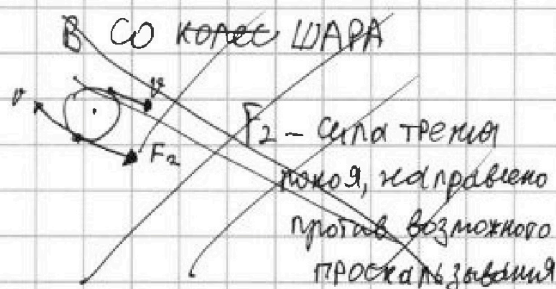 В СО колес ШАРА
v
v
F₂
F₂ – сила трения
покоя, направлено
против возможного
проскальзывания